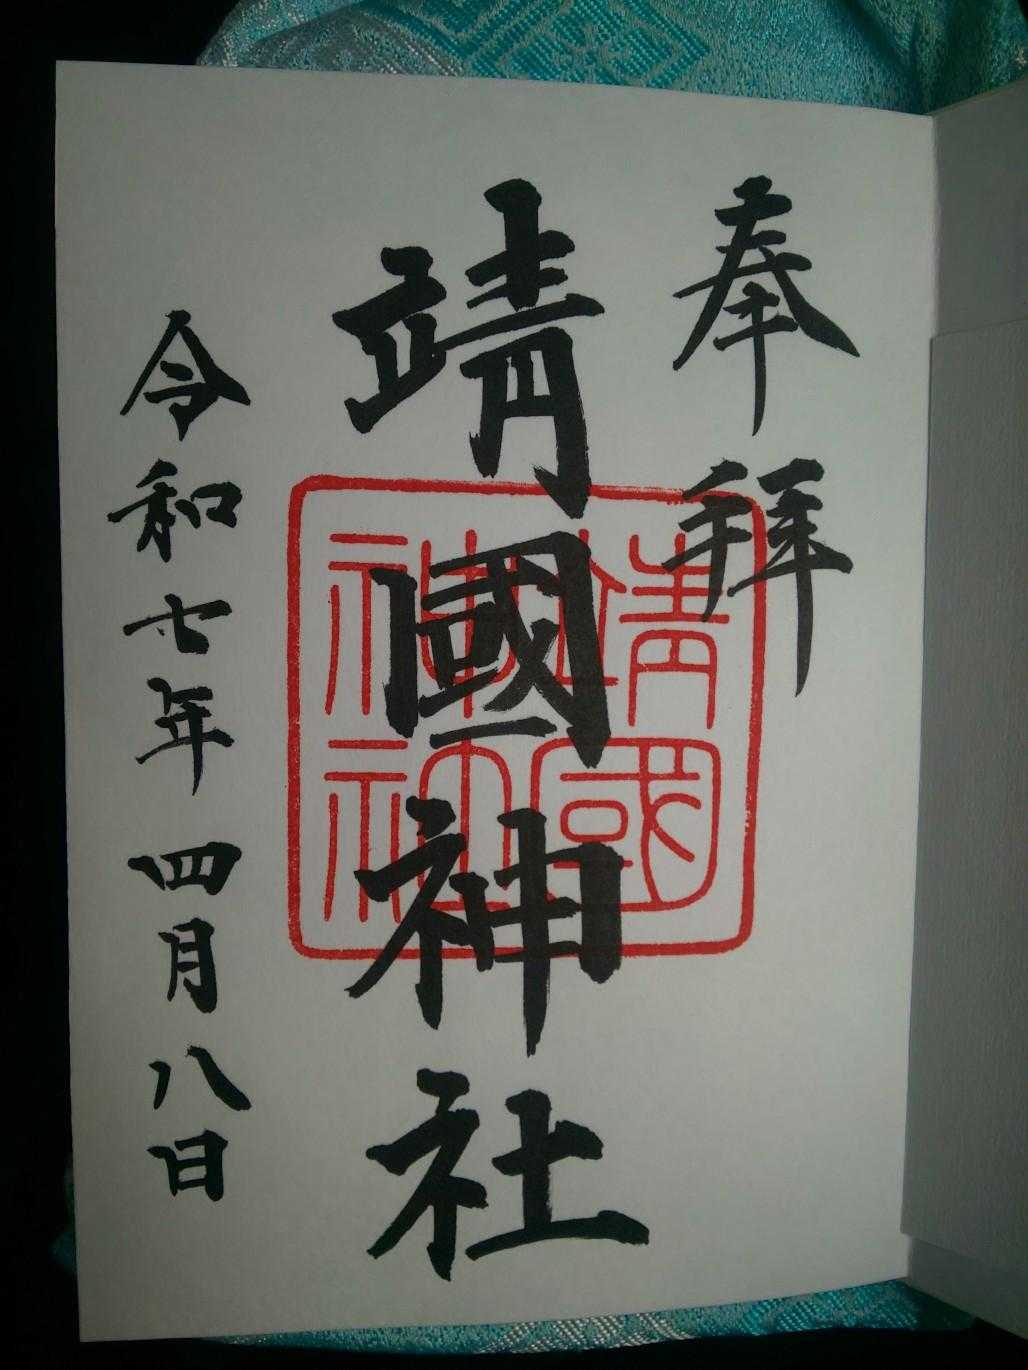 奉拝
靖國神社
靖國神社
令和七年四月八日